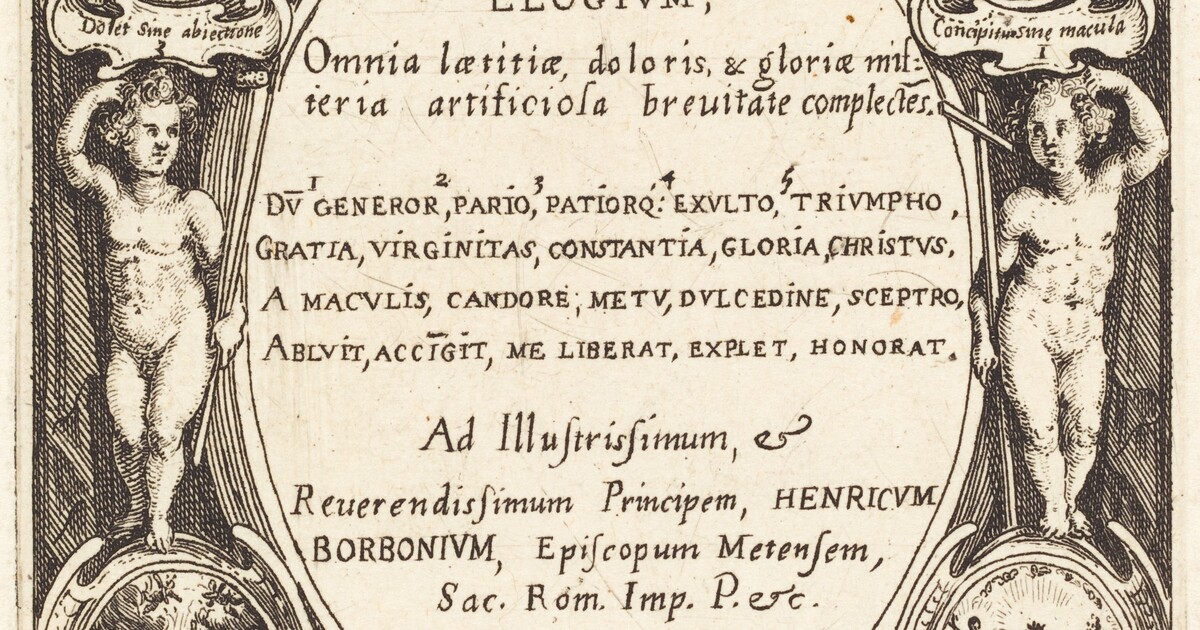 ELOGIVM,
Dolet sine abiectione
3
Concipitur sine macula
1
Omnia lætitiæ, doloris, & gloriæ mis-
teria artificiosa breuitate complectēs.
1 2 3 4 5
DV̄ GENEROR, PARIO, PATIORQ́: EXVLTO, TRIVMPHO,
GRATIA, VIRGINITAS, CONSTANTIA, GLORIA, CHRISTVS,
A MACVLIS, CANDORE, METV, DVLCEDINE, SCEPTRO,
ABLVIT, ACCĪGIT, ME LIBERAT, EXPLET, HONORAT.
Ad Illustrissimum, &
Reuerendissimum Principem, HENRICVM
BORBONIVM, Episcopum Metensem,
Sac. Rom. Imp. P. &c.